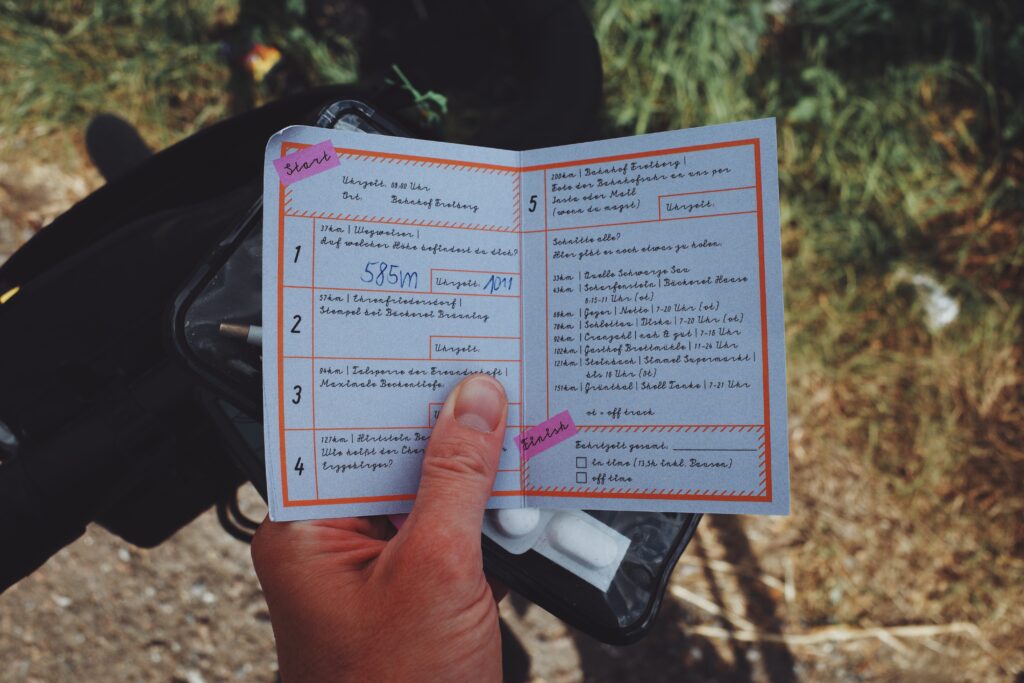 Start
Uhrzeit. 08.00 Uhr
Ort. Bahnhof Freiberg
1
37km | Wegweiser |
Auf welcher Höhe befindest du dich?
585m
Uhrzeit. 1011
2
57km | Ehrenfriedersdorf |
Stempel bei Bäckerei Bräunig
Uhrzeit.
3
94km | Talsperre der Freundschaft |
Maximale Beckentiefe.
4
127km | Hirtstein
Wie heißt der
Erzgebirges?
5
200km | Bahnhof Freiberg |
Foto der Bahnhofsuhr an uns per
Insta oder Mail
(wenn du magst)
Uhrzeit.
Schnitte alle?
Hier gibt es noch etwas zu holen.
33km | Quelle Schwarze Sau
43km | Scharfenstein | Bäckerei Haase
6:15-11 Uhr (ot)
66km | Geyer | Netto | 7-20 Uhr (ot)
78km | Schlettau | Diska | 7-20 Uhr (ot)
92km | Cranzahl | nah & gut | 7-18 Uhr
102km | Gasthof Brettmühle | 11-24 Uhr
121km | Steinbach | Simmel Supermarkt |
bis 18 Uhr (ot)
151km | Grünthal | Shell Tanke | 7-21 Uhr
ot = off track
Finish
Fahrtzeit gesamt.
in time (13,5h inkl. Pausen)
off time